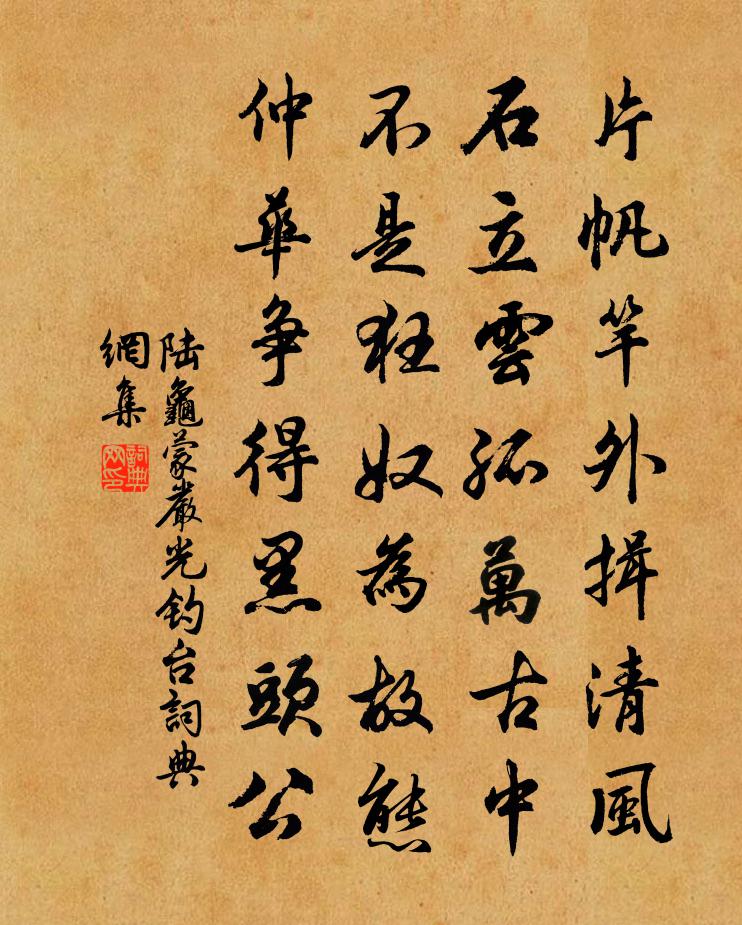 片帆竿外揖清風
石立雲孤萬古中
不是狂奴為故態
仲華争得黑頭公
陆龜蒙嚴光釣台詞典
網集
詞典
网印